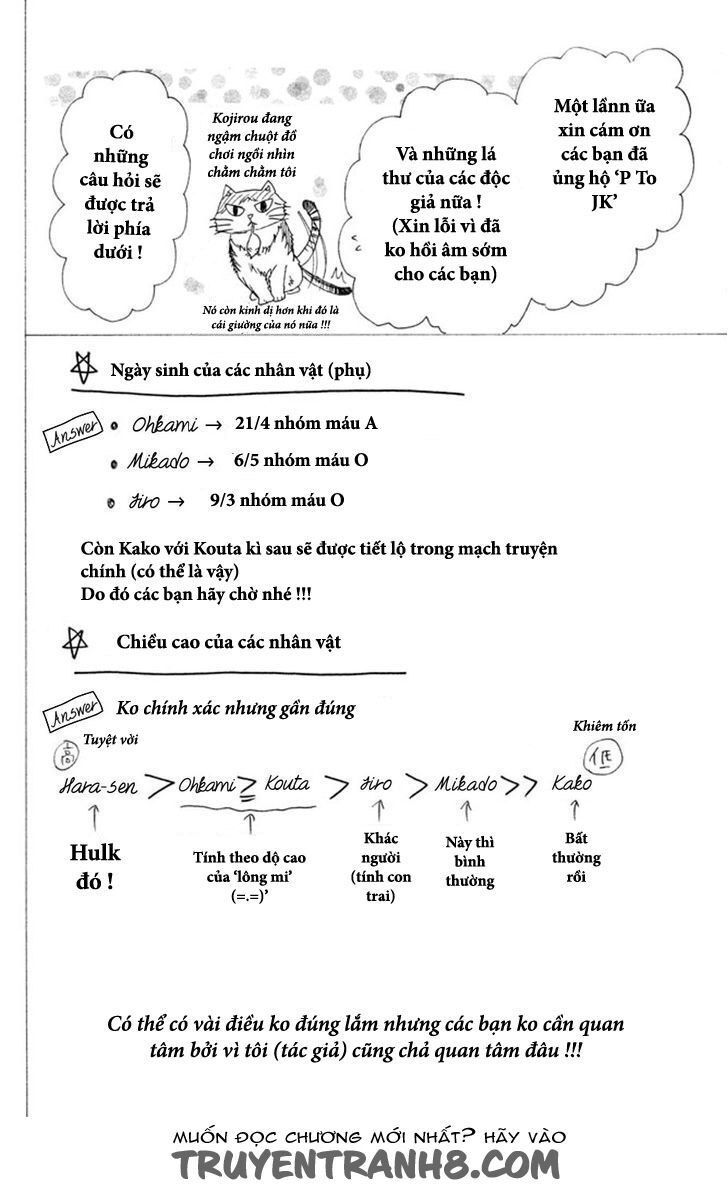 Một lầnn ữa
xin cám ơn
các bạn đã
ủng hộ ‘P To
JK’
Và những lá
thư của các độc
giả nữa !
(Xin lỗi vì đã
ko hồi âm sớm
cho các bạn)
Kojirou đang
ngậm chuột đồ
chơi ngồi nhìn
chằm chằm tôi
Nó còn kinh dị hơn khi đó là
cái giường của nó nữa !!!
Có
những
câu hỏi sẽ
được trả
lời phía
dưới !
Ngày sinh của các nhân vật (phụ)
Answer
• Ohkami → 21/4 nhóm máu A
• Mikado → 6/5 nhóm máu O
• Jiro → 9/3 nhóm máu O
Còn Kako với Kouta kì sau sẽ được tiết lộ trong mạch truyện
chính (có thể là vậy)
Do đó các bạn hãy chờ nhé !!!
Chiều cao của các nhân vật
Answer
Ko chính xác nhưng gần đúng
Tuyệt vời
Khiêm tốn
高
低
Hara-sen > Ohkami ≧ Kouta > Jiro > Mikado >> Kako
Hulk
đó !
Tính theo dộ cao
của ‘lông mi’
(=.=)’
Khác
người
(tính con
trai)
Này thì
bình
thường
Bất
thường
rồi
Có thể có vài điều ko đúng lắm nhưng các bạn ko cần quan
tâm bởi vì tôi (tác giả) cũng chả quan tâm đâu !!!
MUỐN ĐỌC CHƯƠNG MỚI NHẤT? HÃY VÀO
TRUYENTRANH8.COM